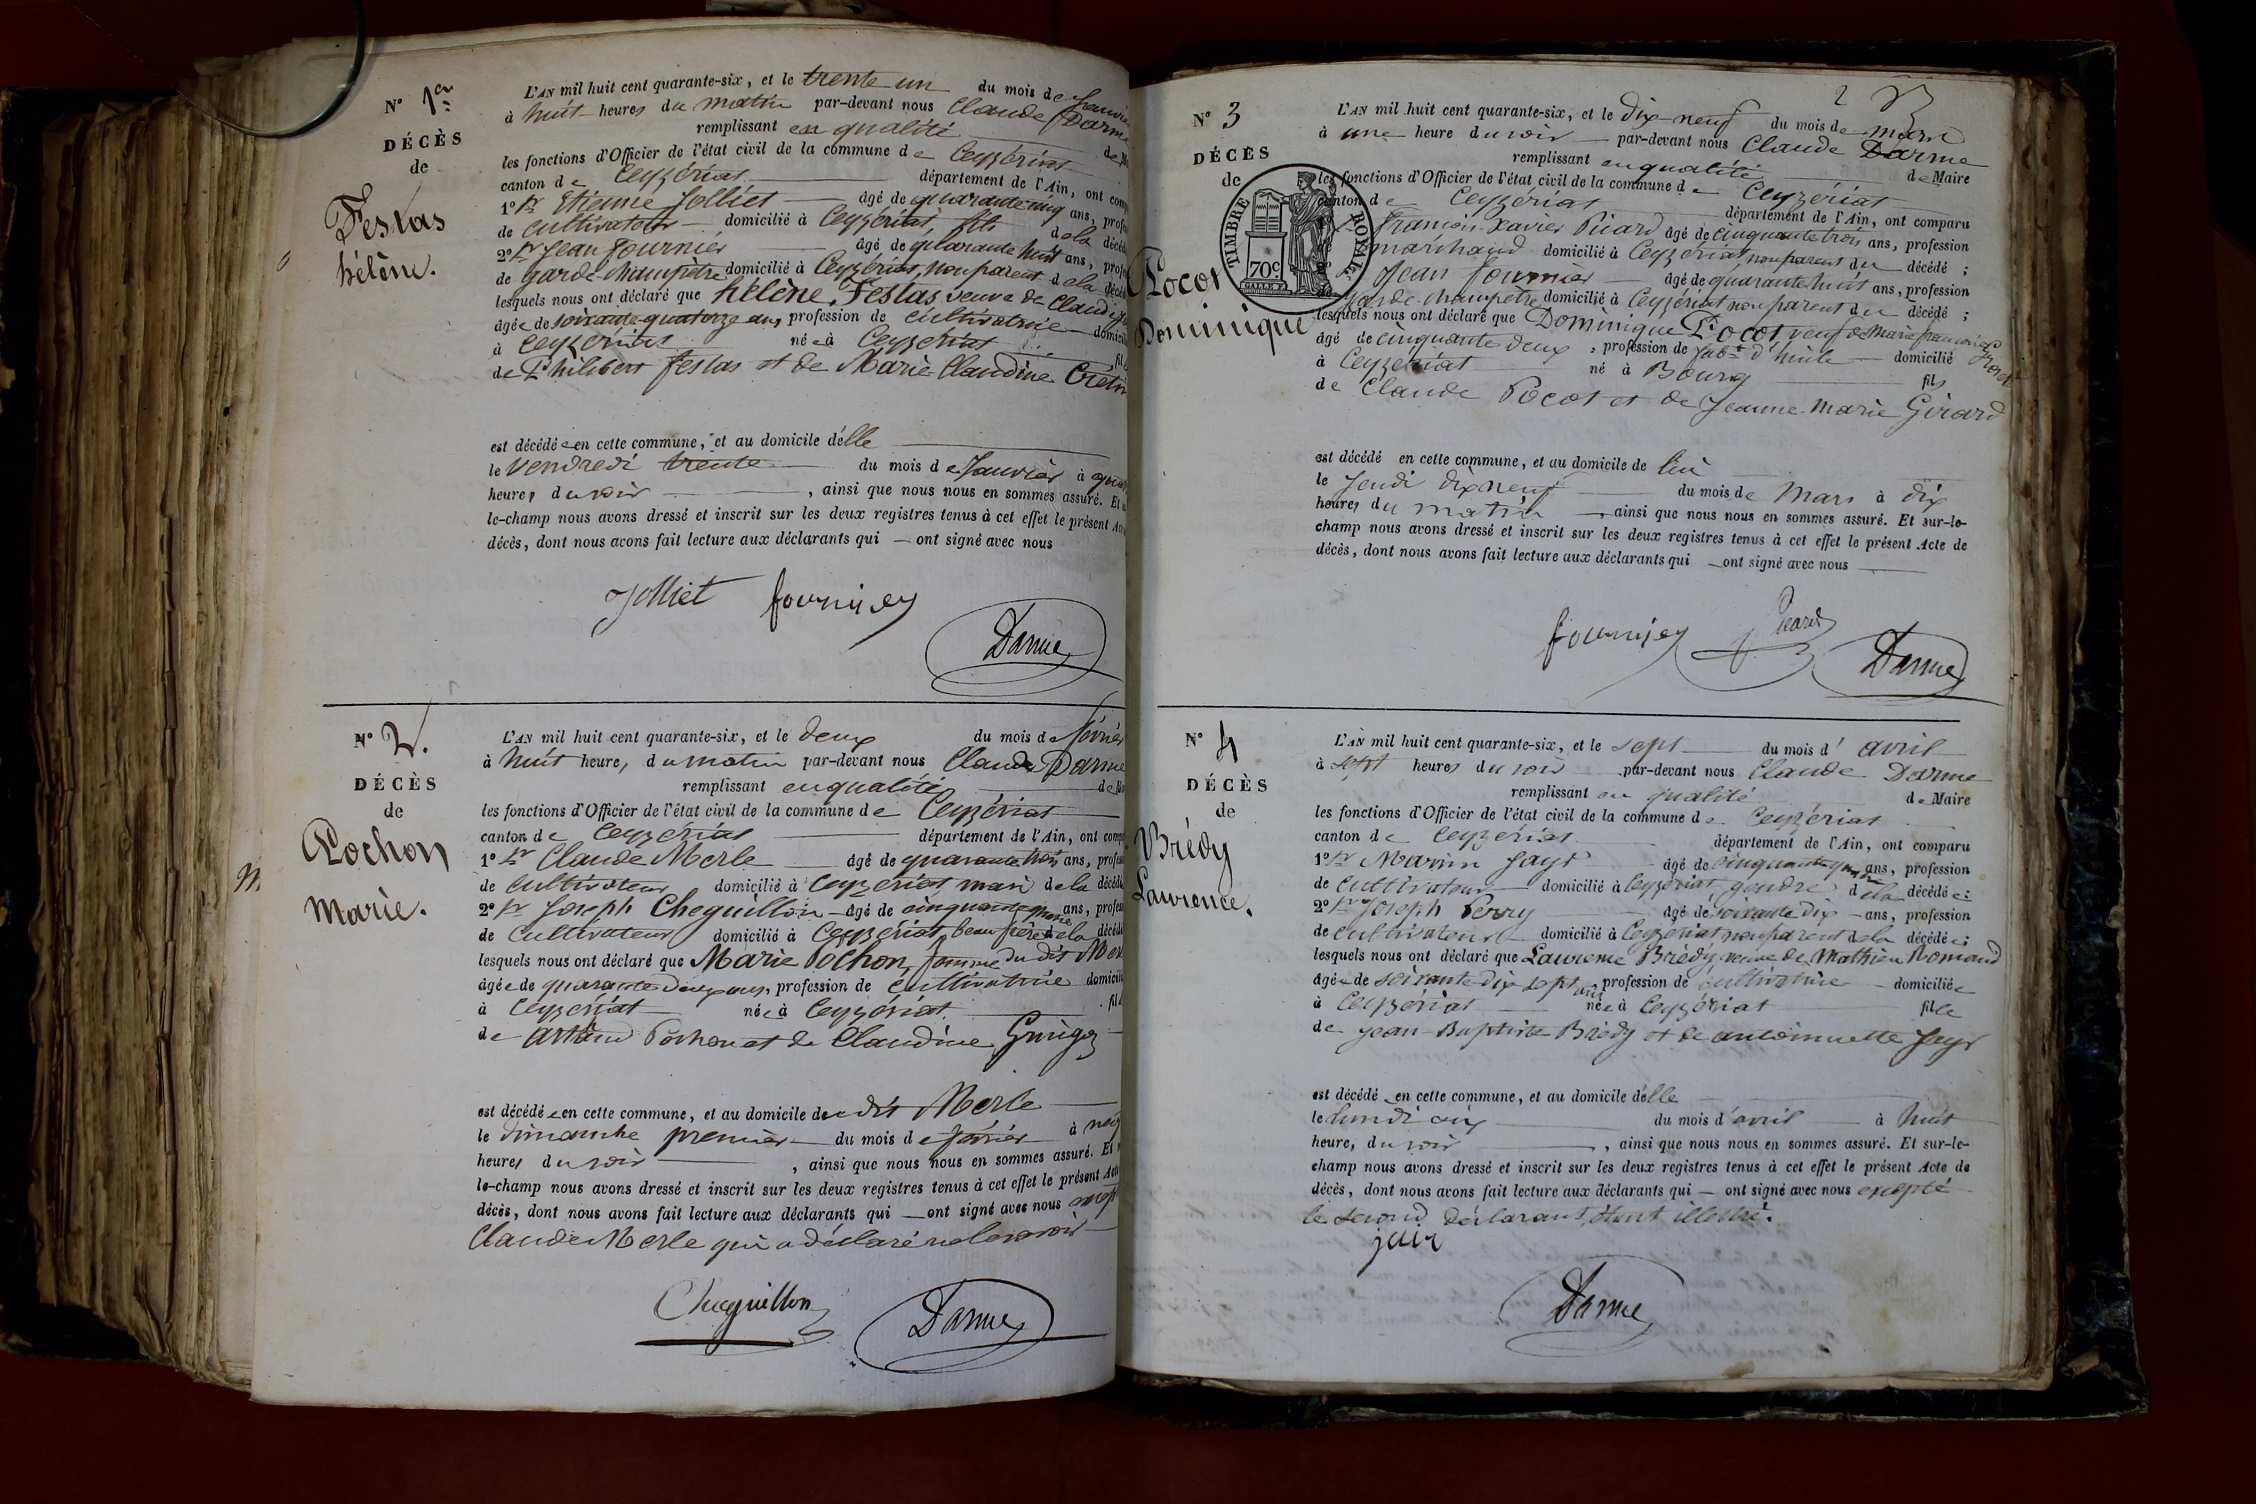 N° 1er
DÉCÈS
de
Festas
hélène.
L'AN mil huit cent quarante-six, et le trente un du mois de Janvier
à huit heures du matin par-devant nous Claude Darme
remplissant en qualité de
les fonctions d'Officier de l'état civil de la commune de Ceyzériat
canton de Ceyzériat département de l'Ain, ont
1° Sr Etienne Jolliet âgé de quarante cinq ans,
de cultivateur domicilié à Ceyzériat fils de la
2° Sr Jean fournier âgé de quarante huit ans,
de garde-champêtre domicilié à Ceyzériat, non parent de la
lesquels nous ont déclaré que hélène, Festas veuve de Claude
âgée de soixante-quatorze ans, profession de cultivatrice
à Ceyzériat née à Ceyzériat
de Philibert festas et de Marie Claudine Cretin
est décédée en cette commune, et au domicile d'elle
le vendredi trente du mois de Janvier à
heures du soir, ainsi que nous nous en sommes assuré. Et
le-champ nous avons dressé et inscrit sur les deux registres tenus à cet effet le présent
décès, dont nous avons fait lecture aux déclarants qui — ont signé avec nous
Jolliet fournier
Darme
N° 2.
DÉCÈS
de
Pochon
Marie.
L'AN mil huit cent quarante-six, et le deux du mois de février
à huit heures du matin par-devant nous Claude Darme
remplissant en qualité de
les fonctions d'Officier de l'état civil de la commune de Ceyzériat
canton de Ceyzériat département de l'Ain, ont
1° Sr Claude Merle âgé de quarante trois ans,
de cultivateur domicilié à Ceyzériat mari de la
2° Sr Joseph Cheguillon âgé de cinquante ans,
de cultivateur domicilié à Ceyzériat, beau frère de la
lesquels nous ont déclaré que Marie Pochon, femme du dit Merle
âgée de quarante deux ans, profession de cultivatrice
à Ceyzériat née à Ceyzériat
de Pochon et de Claudine Guigoz
est décédée en cette commune, et au domicile du dit Merle
le dimanche premier du mois de février à
heures du soir, ainsi que nous nous en sommes assuré. Et
le-champ nous avons dressé et inscrit sur les deux registres tenus à cet effet le présent
décès, dont nous avons fait lecture aux déclarants qui — ont signé avec nous
Claude Merle qui a déclaré ne le savoir
Cheguillon Darme
2
N° 3
DÉCÈS
de
Pocot
Dominique
TIMBRE ROYAL
70c
L'AN mil huit cent quarante-six, et le dix-neuf du mois de mars
à une heure du soir par-devant nous Claude Darme
remplissant en qualité de Maire
les fonctions d'Officier de l'état civil de la commune de Ceyzériat
canton de Ceyzériat département de l'Ain, ont comparu
françois-Xavier Picard âgé de cinquante trois ans, profession
marchand domicilié à Ceyzériat, non parent du décédé ;
Jean fournier âgé de quarante huit ans, profession
garde-champêtre domicilié à Ceyzériat non parent du décédé ;
lesquels nous ont déclaré que Dominique Pocot veuf de Marie françoise
âgé de cinquante deux, profession de fabt d'huile domicilié
à Ceyzériat né à Bourg fils
de Claude Pocot et de Jeanne-Marie Girard
est décédé en cette commune, et au domicile de lui
le Jeudi dix neuf du mois de Mars à dix
heures du matin, ainsi que nous nous en sommes assuré. Et sur-le-
champ nous avons dressé et inscrit sur les deux registres tenus à cet effet le présent Acte de
décès, dont nous avons fait lecture aux déclarants qui — ont signé avec nous
fournier Picard
Darme
N° 4
DÉCÈS
de
Brédy
Laurence.
L'AN mil huit cent quarante-six, et le sept du mois d' avril
à sept heures du soir par-devant nous Claude Darme
remplissant en qualité de Maire
les fonctions d'Officier de l'état civil de la commune de Ceyzériat
canton de Ceyzériat département de l'Ain, ont comparu
1° Sr Marin Jayr âgé de cinquante ans, profession
de cultivateur domicilié à Ceyzériat, gendre de la décédée ;
2° Sr Joseph Perry âgé de soixante dix ans, profession
de cultivateur domicilié à Ceyzériat non parent de la décédée ;
lesquels nous ont déclaré que Laurence Brédy veuve de Mathieu Romand
âgée de soixante-dix sept ans, profession de cultivatrice domiciliée
à Ceyzériat née à Ceyzériat fille
de Jean-Baptiste Brédy et de antoinnette Jayr
est décédé en cette commune, et au domicile d'elle
le lundi six du mois d'avril à huit
heures du soir, ainsi que nous nous en sommes assuré. Et sur-le-
champ nous avons dressé et inscrit sur les deux registres tenus à cet effet le présent Acte de
décès, dont nous avons fait lecture aux déclarants qui — ont signé avec nous excepté
le second déclarant, étant illettré.
jair
Darme